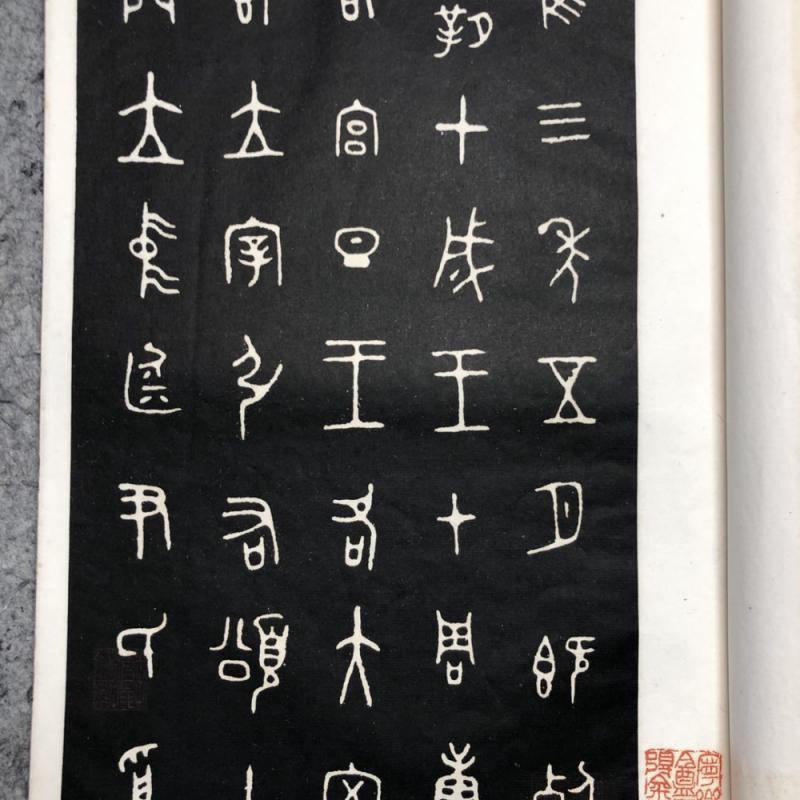 隹三年五月既死
霸甲戌王才周康
卲宮旦王各大室
即立宰引右頌入
門立中廷尹氏受